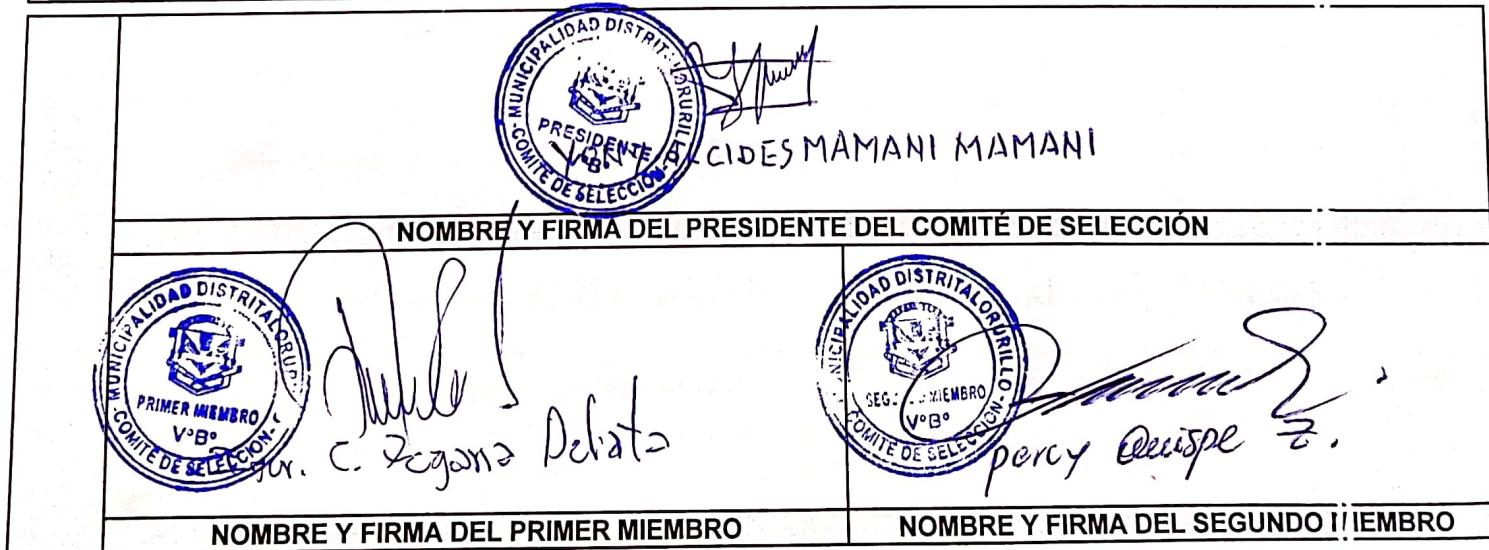 MUNICIPALIDAD DISTRITAL ORURILLO
PRESIDENTE
V°B°
COMITE DE SELECCIÓN
CIDES MAMANI MAMANI
NOMBRE Y FIRMA DEL PRESIDENTE DEL COMITÉ DE SELECCIÓN
MUNICIPALIDAD DISTRITAL ORURI
PRIMER MIEMBRO
V°B°
COMITE DE SELECCION
C.
NOMBRE Y FIRMA DEL PRIMER MIEMBRO
NICIPALIDAD DISTRITAL ORURILLO
MIEMBRO
V°B°
COMITE DE SELECCION
percy Quispe Z.
NOMBRE Y FIRMA DEL SEGUNDO MIEMBRO